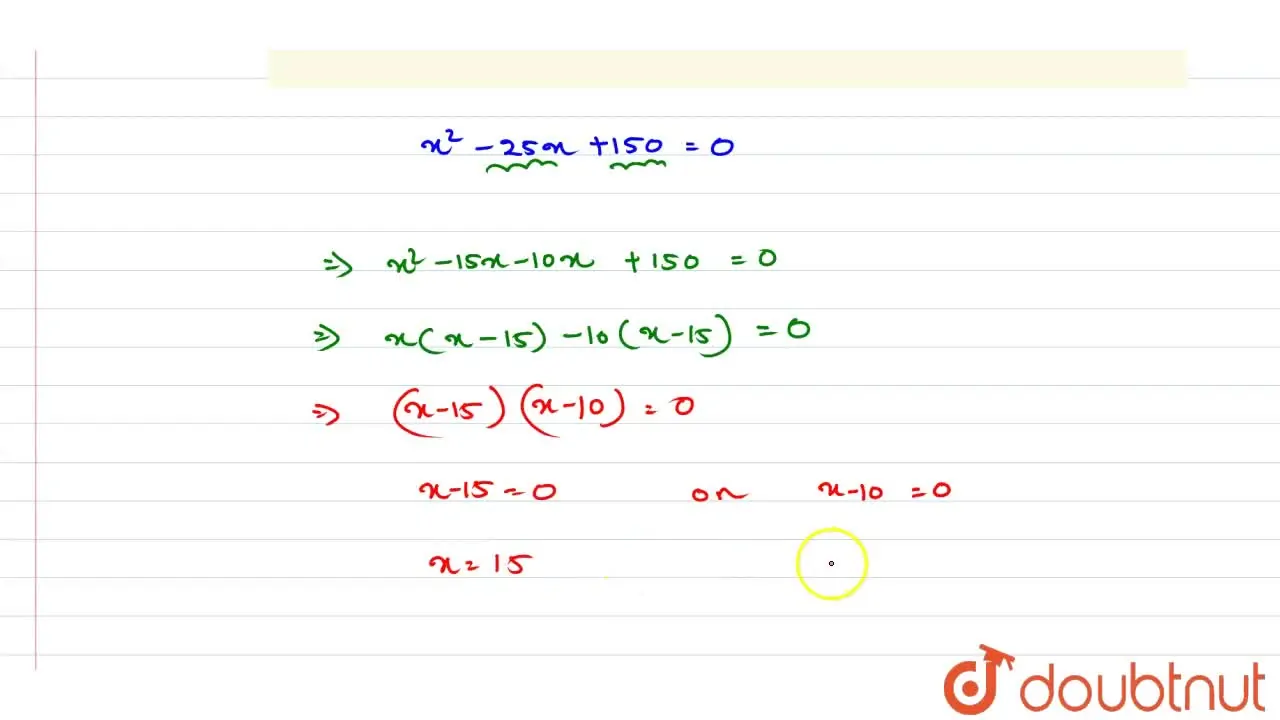 x² - 25x + 150 = 0
⇒ x² - 15x - 10x + 150 = 0
⇒ x(x - 15) - 10(x - 15) = 0
⇒ (x - 15)(x - 10) = 0
x - 15 = 0 or x - 10 = 0
x = 15
doubtnut